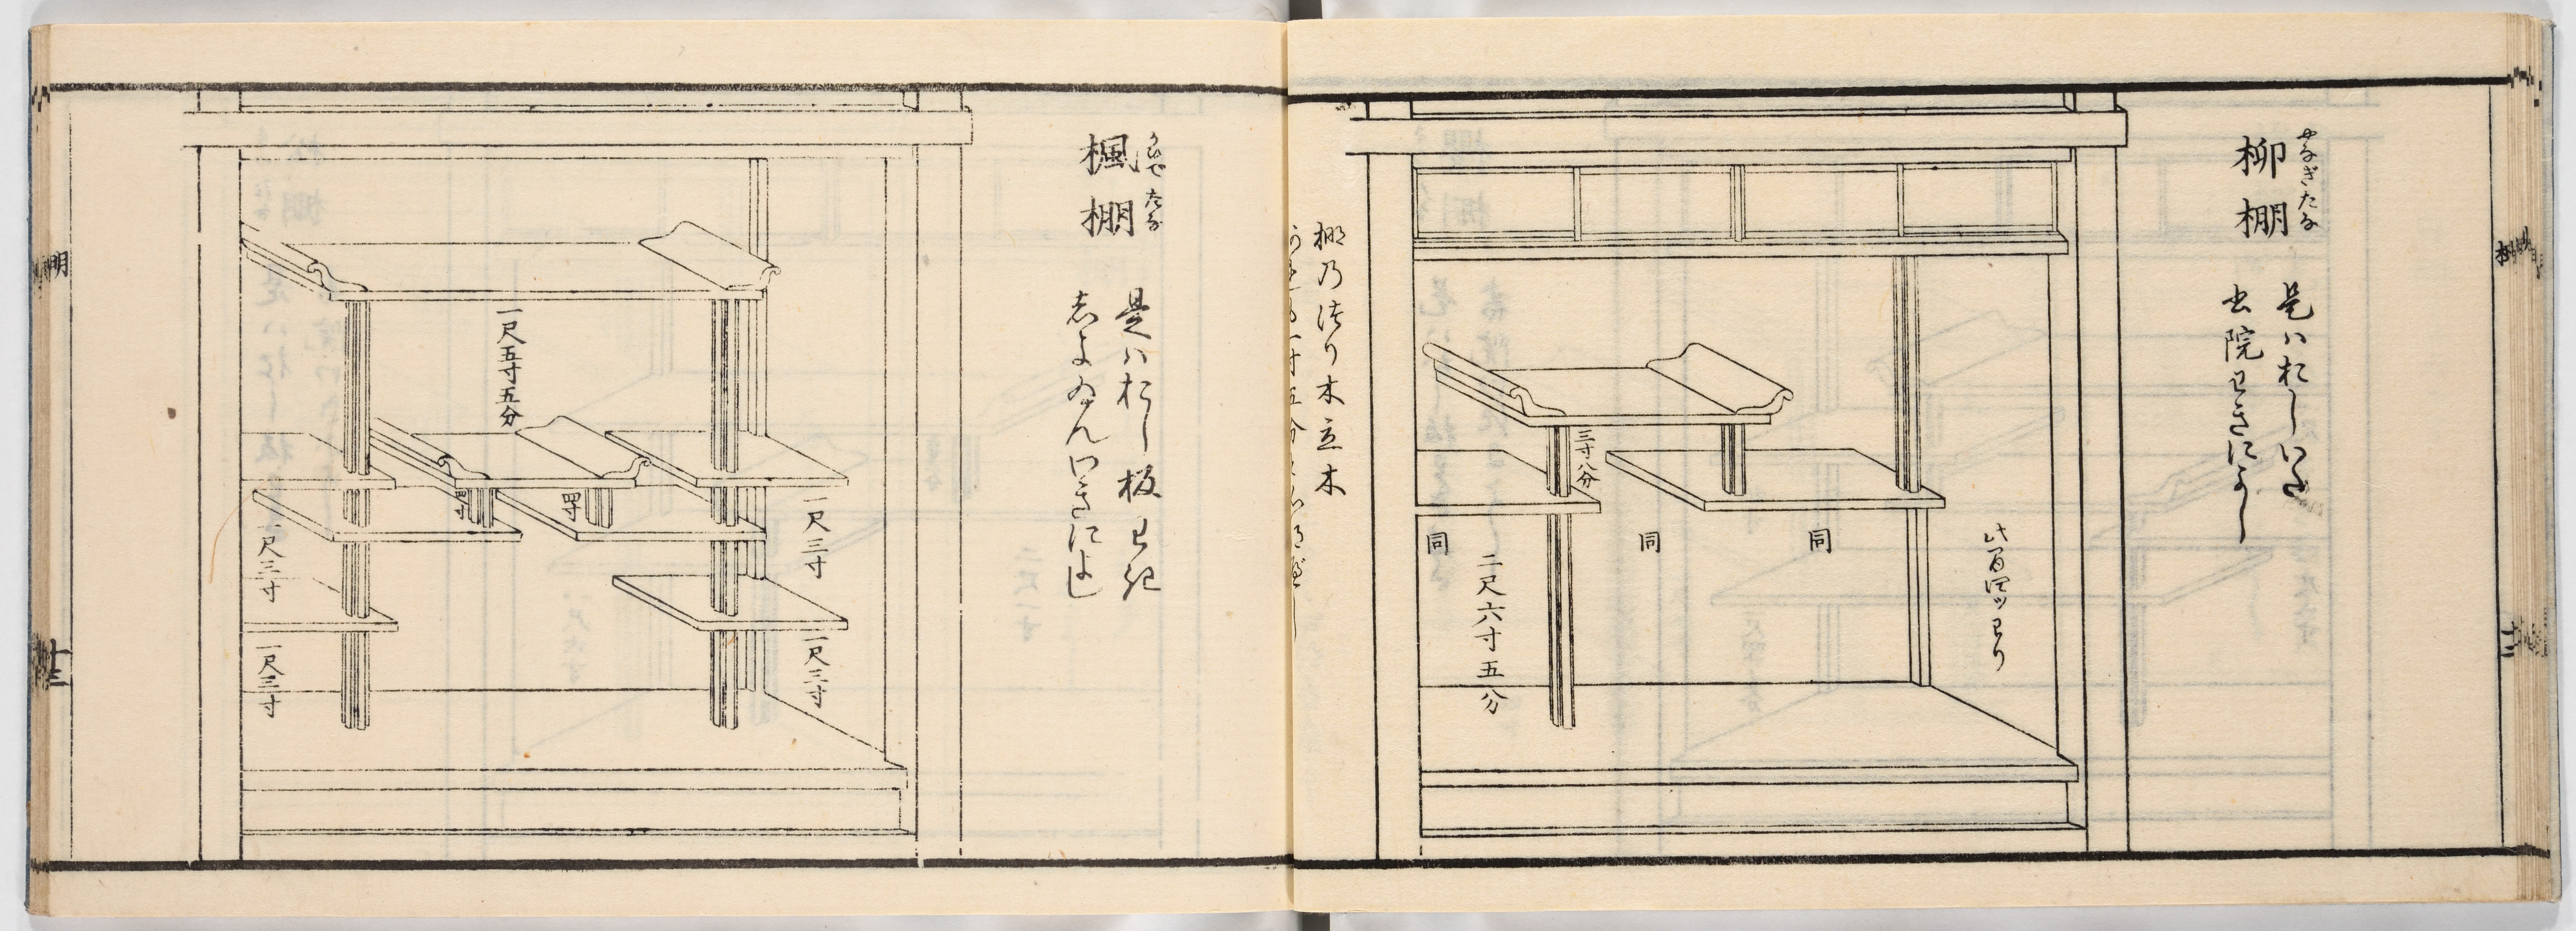 柳棚
やなぎたな
是ハおしいた
出院わきによし
此間四ツわり
同
同
同
三寸八分
二尺六寸五分
棚乃法り木立木
楓棚
かいでたな
是ハおし板わき
志よゐんわきによし
一尺五寸五分
一尺三寸
一尺三寸
四寸
四寸
一尺三寸
一尺三寸
十三